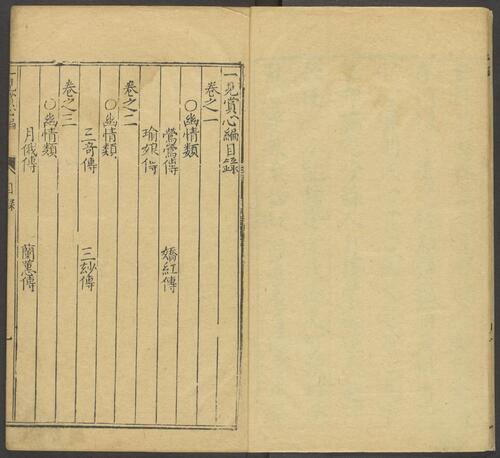 一見賞心編目錄
卷之一
○幽情類
鶯鶯傳 嬌紅傳
瑜娘傳
卷之二
○幽情類
三奇傳 三玅傳
卷之三
○幽情類
月娥傳 蘭蕙傳
目錄